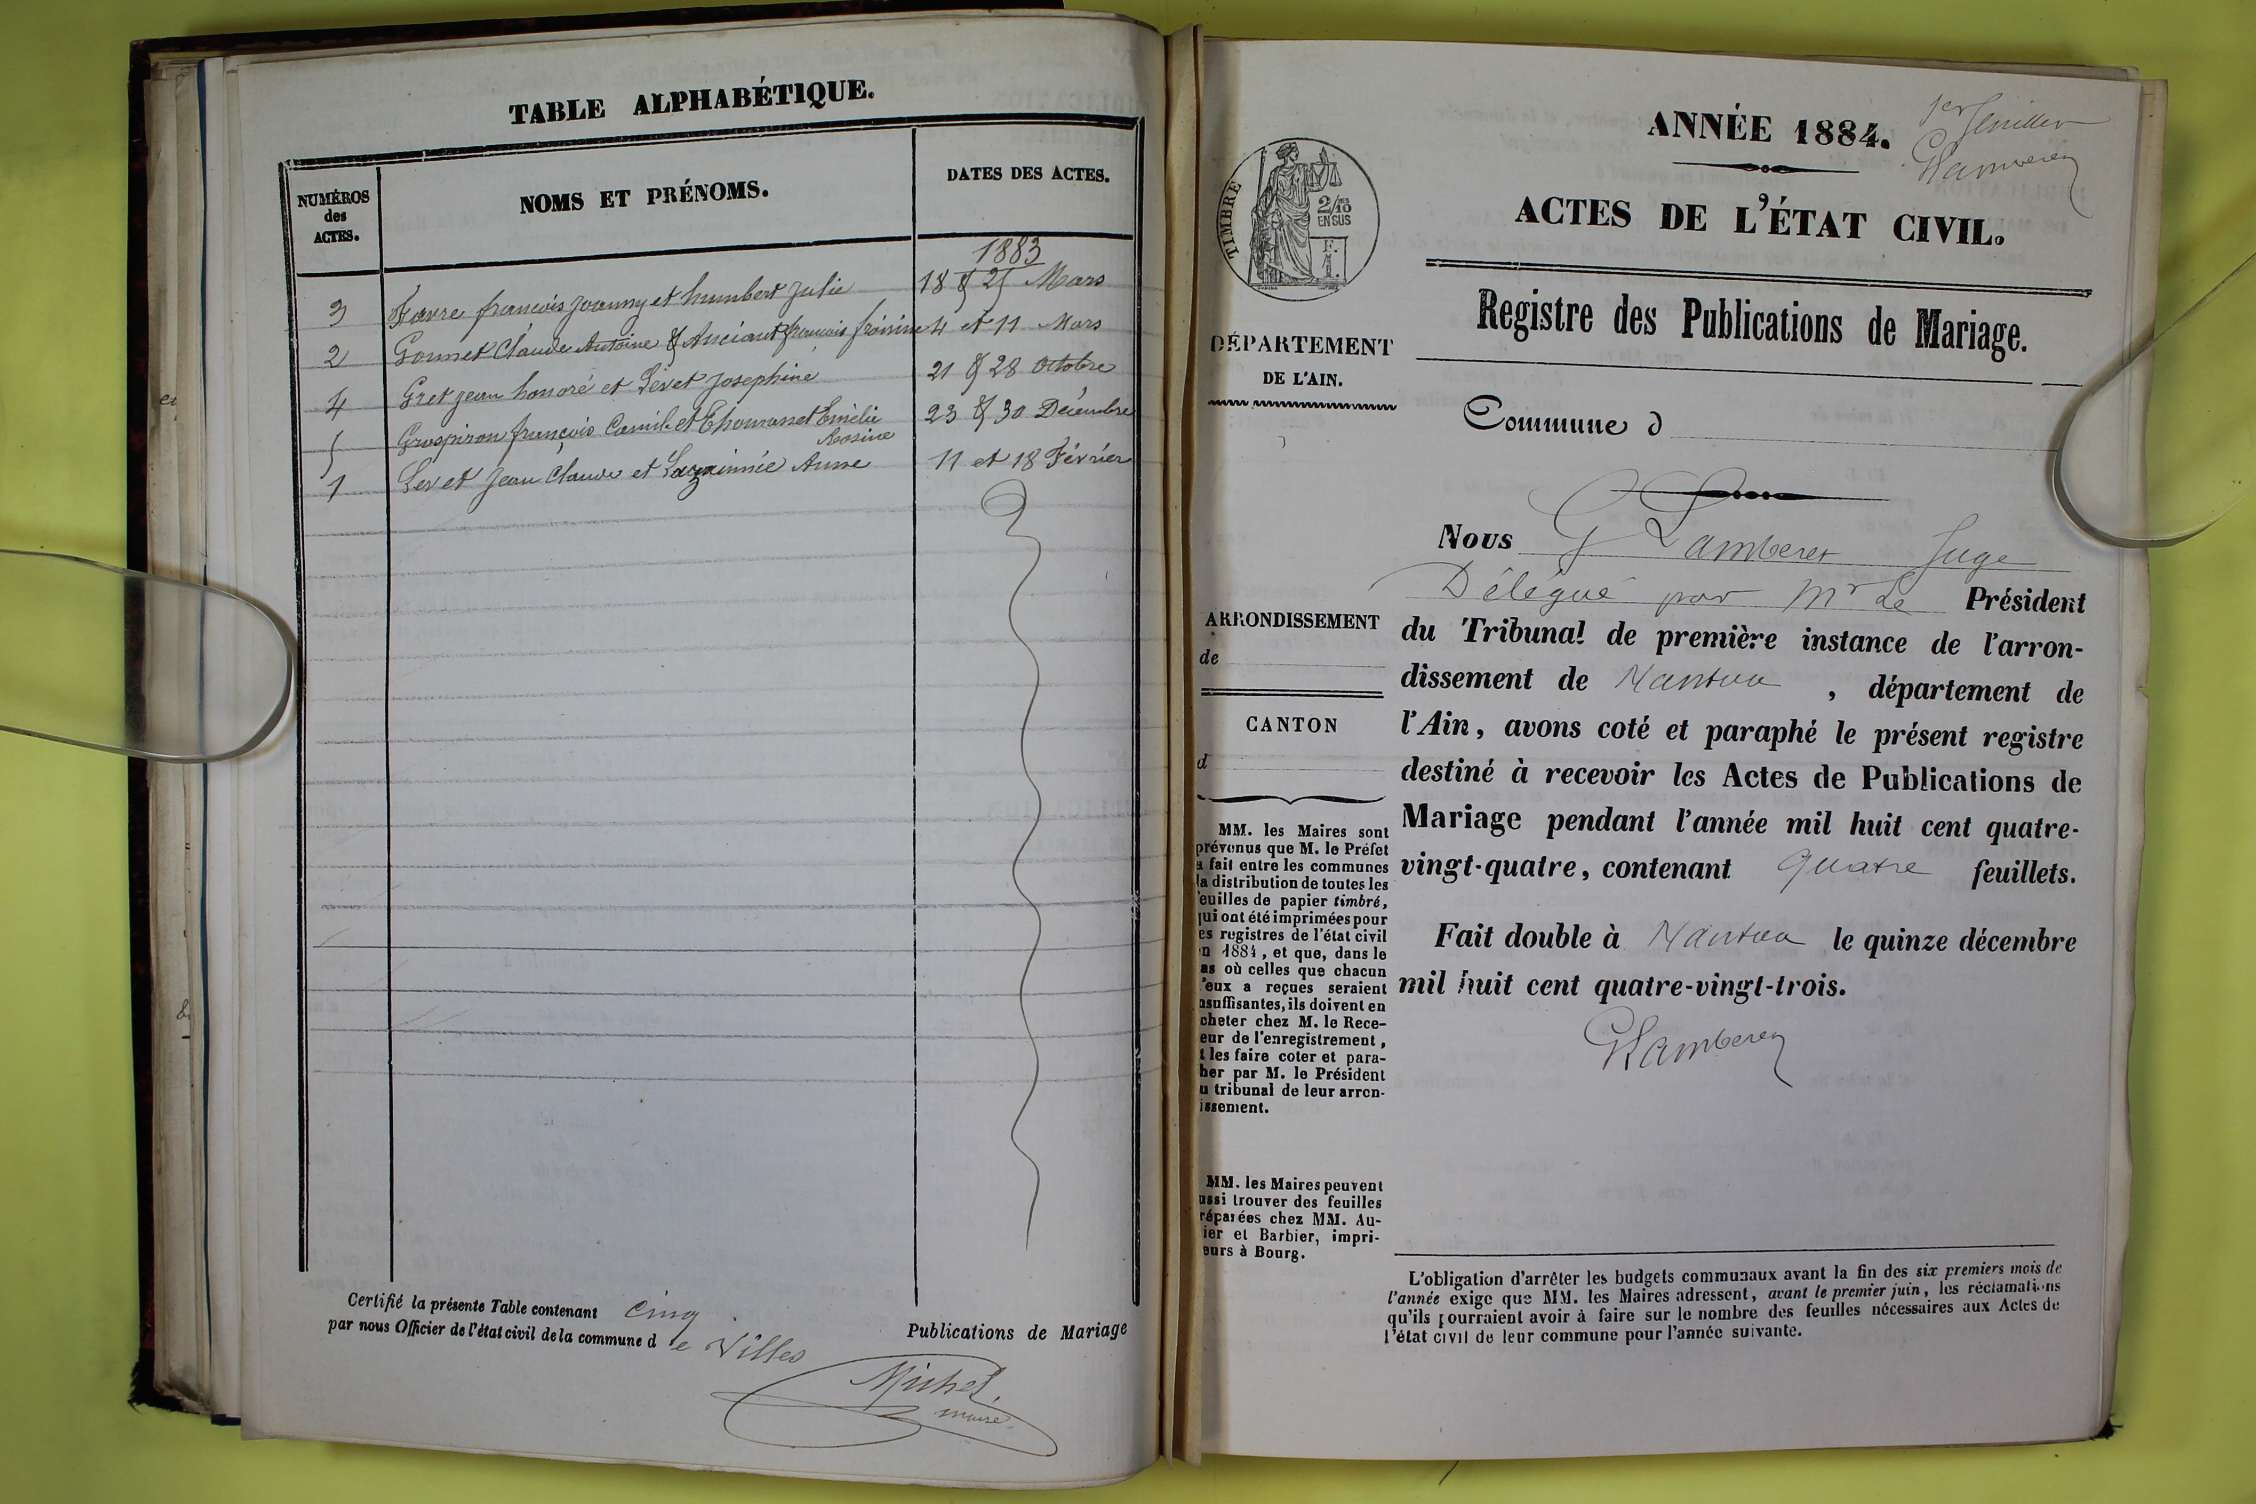 TABLE ALPHABÉTIQUE.
NUMÉROS des ACTES.
NOMS ET PRÉNOMS.
DATES DES ACTES.
1883
3 Favre françois joanny et humbert Julie 18 & 25 Mars
2 Gonnet Claude Antoine & Anciant françois 4 et 11 Mars
4 Gret jean honoré et Levet Josephine 21 & 28 Octobre
5 Grospiron françois Camil et Thomasset Emélie Rosine 23 & 30 Décembre
1 Levet Jean Claude et Anne 11 et 18 Février
Certifié la présente Table contenant cinq Publications de Mariage
par nous Officier de l'état civil de la commune d e Villes
Michel
maire
1er feuillet
GLamberet
ANNÉE 1884.
ACTES DE L'ÉTAT CIVIL.
TIMBRE
2/10 ES
EN SUS
F.
1.
Registre des Publications de Mariage.
DÉPARTEMENT
DE L'AIN.
Commune d
ARRONDISSEMENT
de
CANTON
d
MM. les Maires sont
prévenus que M. le Préfet
a fait entre les communes
la distribution de toutes les
feuilles de papier timbré,
qui ont été imprimées pour
es registres de l'état civil
n 1884, et que, dans le
as où celles que chacun
'eux a reçues seraient
nsuffisantes, ils doivent en
cheter chez M. le Rece-
eur de l'enregistrement,
t les faire coter et para-
her par M. le Président
u tribunal de leur arron-
issement.
MM. les Maires peuvent
ussi trouver des feuilles
réparées chez MM. Au-
ier et Barbier, impri-
eurs à Bourg.
Nous G Lamberet Juge
Délégué par Mr Le Président
du Tribunal de première instance de l'arron-
dissement de Nantua , département de
l'Ain, avons coté et paraphé le présent registre
destiné à recevoir les Actes de Publications de
Mariage pendant l'année mil huit cent quatre-
vingt-quatre, contenant quatre feuillets.
Fait double à Nantua le quinze décembre
mil huit cent quatre-vingt-trois.
GLamberet
L'obligation d'arrêter les budgets communaux avant la fin des six premiers mois de
l'année exige que MM. les Maires adressent, avant le premier juin, les réclamations
qu'ils pourraient avoir à faire sur le nombre des feuilles nécessaires aux Actes de
l'état civil de leur commune pour l'année suivante.